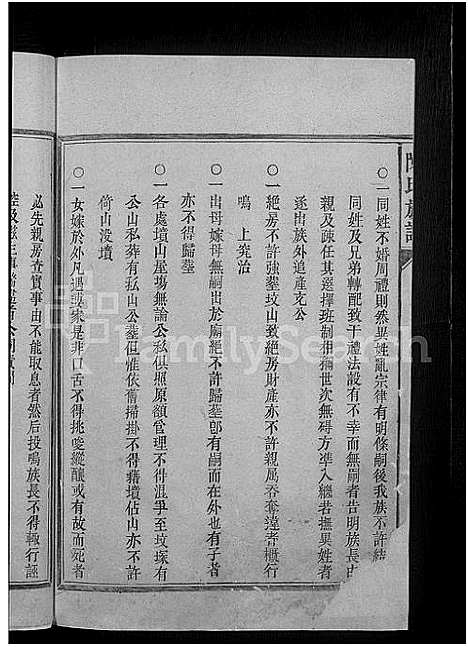 陳氏族譜
〇一同姓不婚周禮則然異姓亂宗律有明條嗣後我族不許結
同姓及兄弟轉配致干禮法設有不幸而無嗣者告明族長由
親及疎任其選擇班制相猶世次無碍方準入繼若撫異姓者
逐出族外追產充公
〇一絕房不許強塟坟山致絕房財產亦不許親屬吞奪違者概行
鳴上究治
〇一出母嫁母無嗣出於廟絕不許歸塟卽有嗣而在外也有子者
亦不得歸塟
〇一各處墳山屋塲無論公私俱照原額管理不得混爭至坟塚有
公山私葬有私山公塟但惟依舊掃掛不得藉墳佔山亦不許
倚山沒墳
〇一女嫁於外凡遇或家是非口舌不得挑唆縱釀或有故而死者
必先親房查實事由不能取息者然後投鳴族長不得輒行誣
FamilySearch